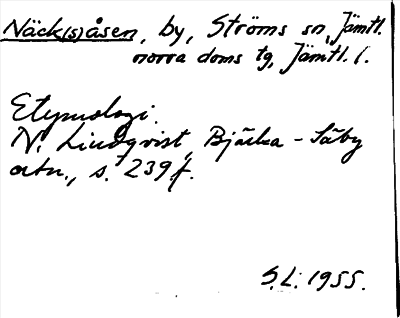 Näck(s)åsen, by, Ströms sn, Jämtl.
norra doms tg, Jämtl. l.
Etymologi.
N. Lindqvist, Bjärka-Säby
ortn., s. 239 f.
S.L. 1955.